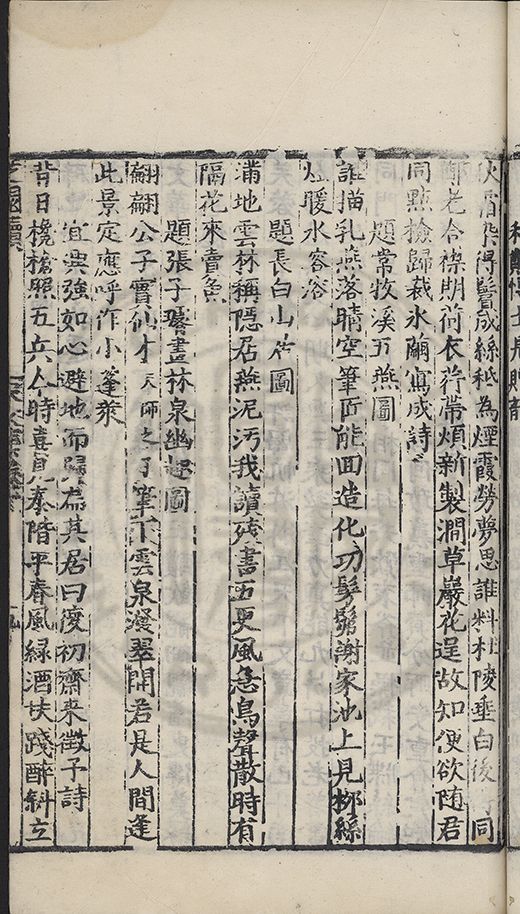 秋霜染得鬢成絲秪為煙霞勞夢思誰料杜陵垂白後同
鄭老合襟期荷衣荇帶煩新製澗草巖花逞故知便欲随君
同點檢歸裁氷繭寫成詩
題常牧溪五燕圖
誰描乳燕落晴空筆底能回造化功髣髴謝家池上見栁絲
煙暖水容容
題長白山居圖
滿地雲林稱隱居燕泥汚我讀殘書五更風急鳥聲散時有
隔花來賣魚
題張子璿畫林泉幽趣圖
翩翩公子實仙才天師之子筆下雲泉潑翠開君是人間逢
此景定應呼作小蓬萊
宜興強如心避地而歸扁其居曰復初齋來徵予詩
昔日欃槍照五兵今時真見泰階平春風緑酒扶踐醉斜立